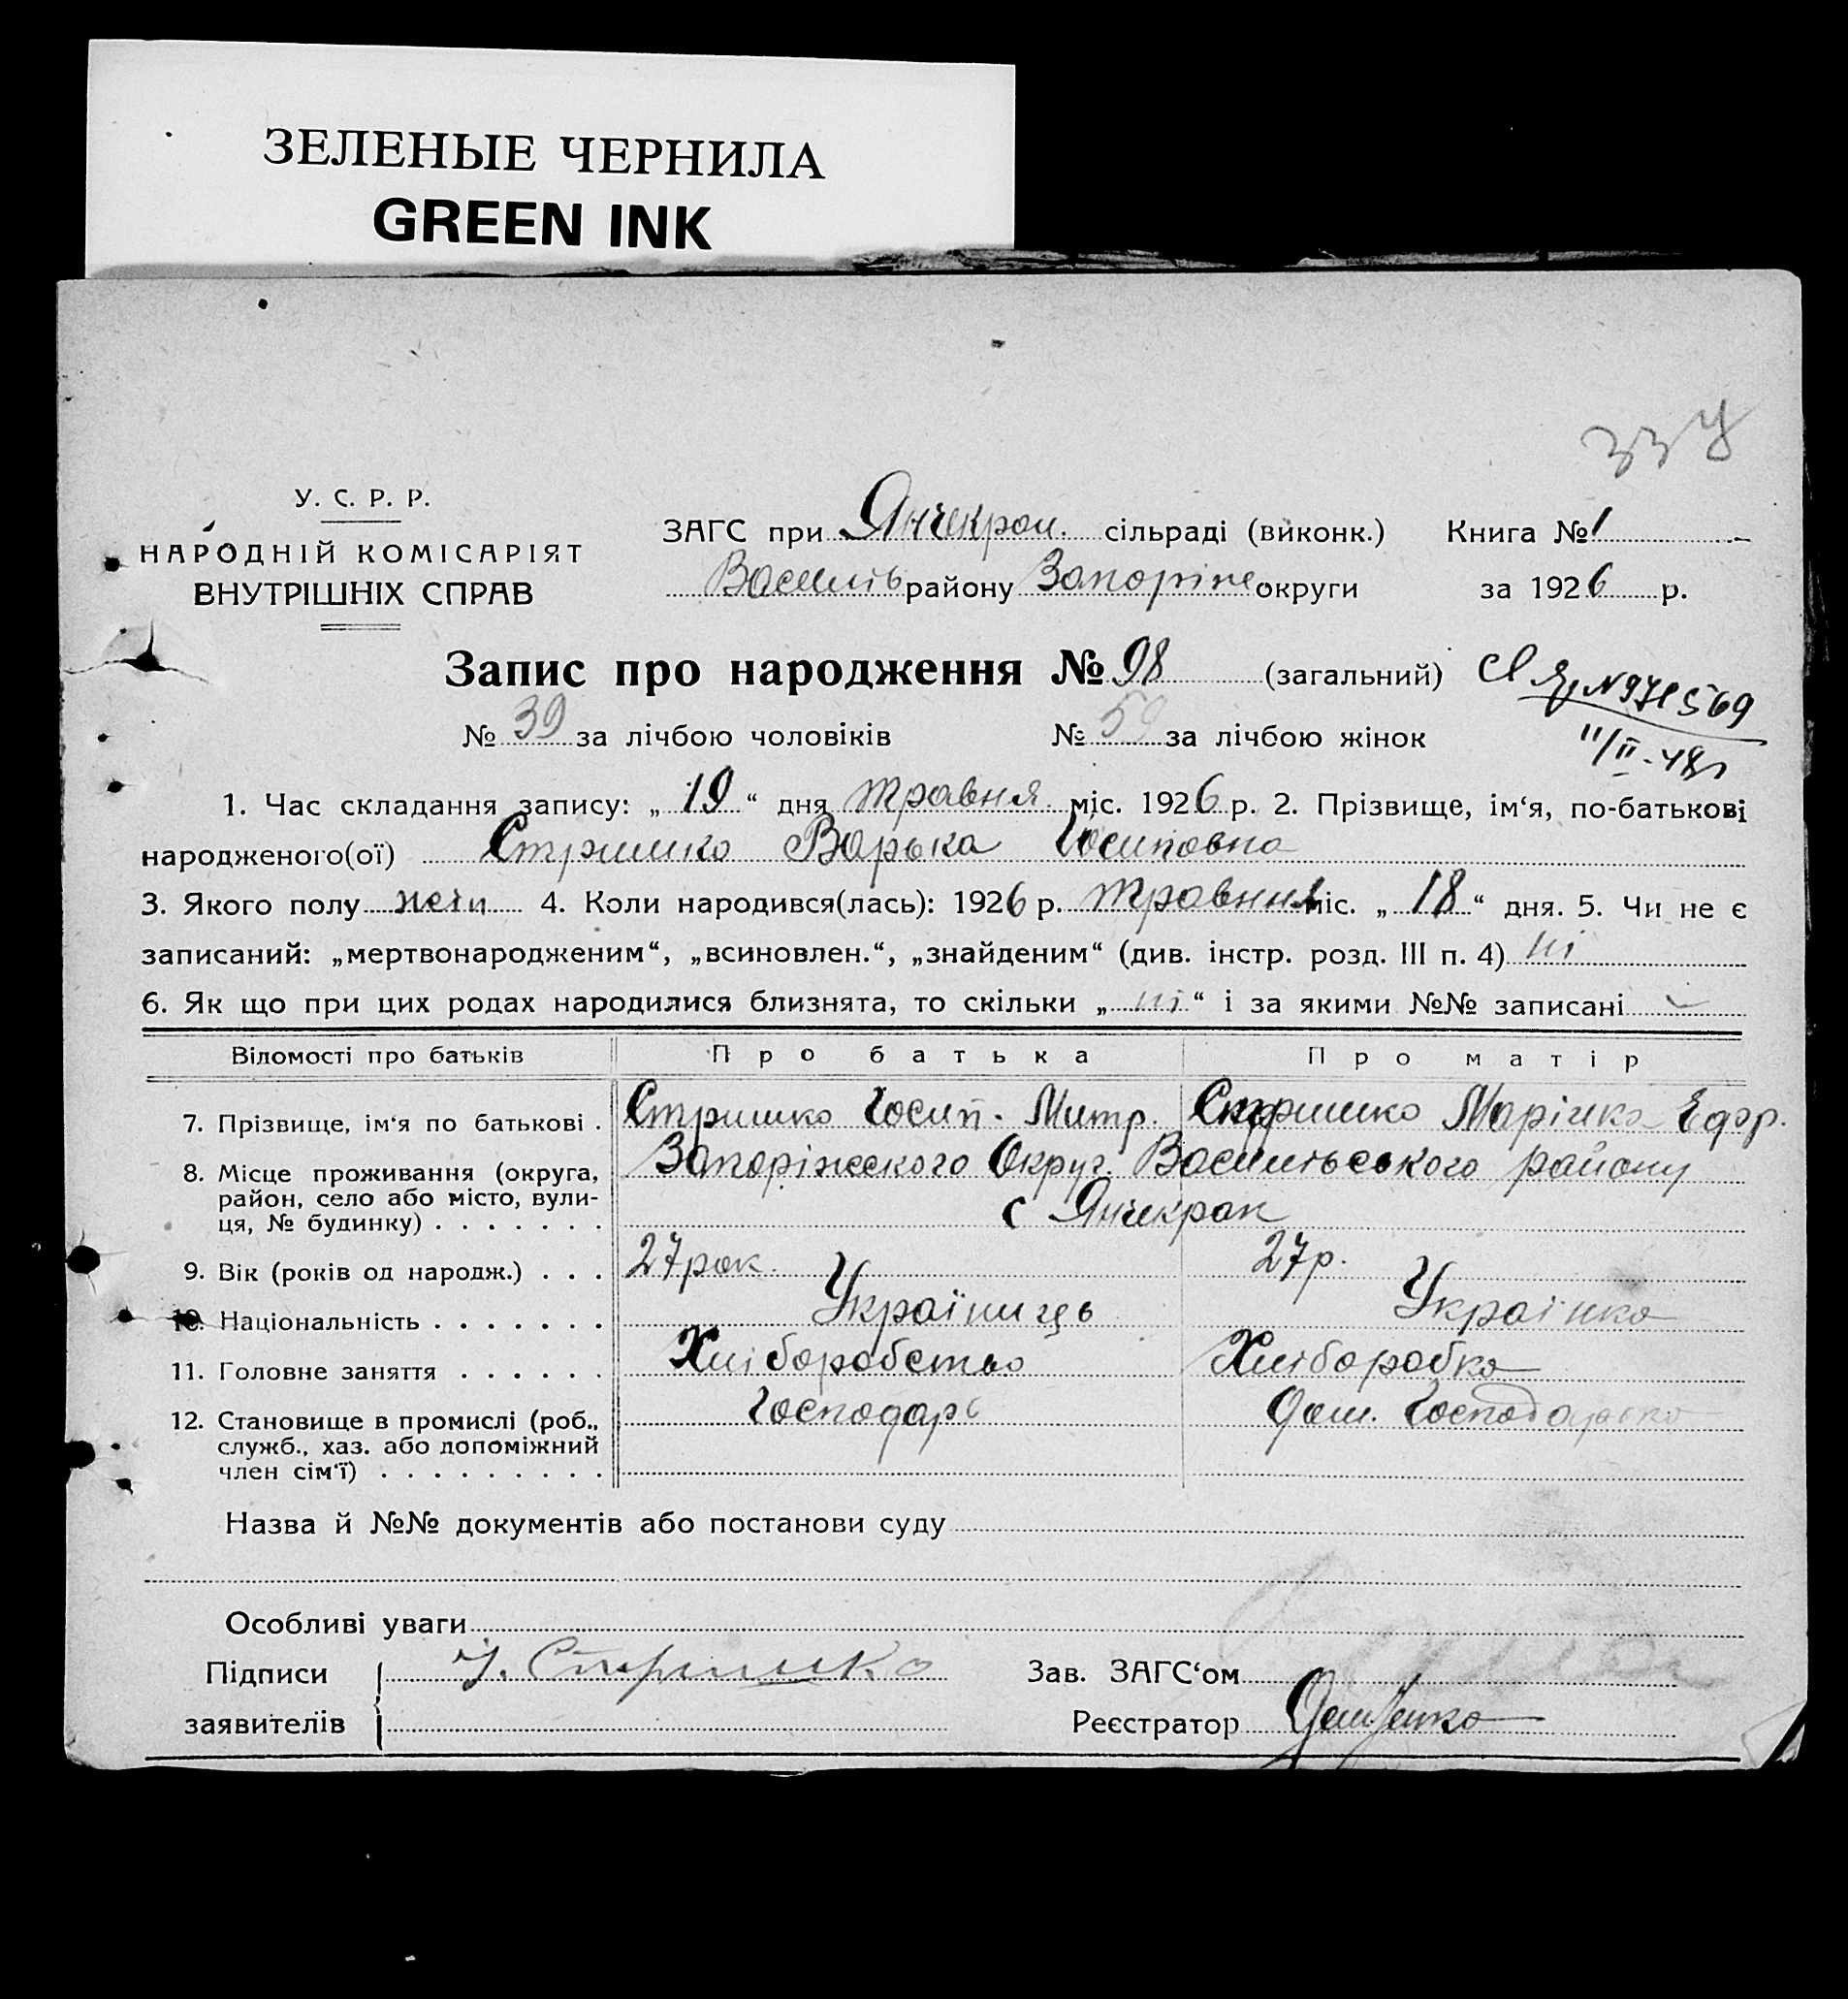 ЗЕЛЕНЫЕ ЧЕРНИЛА
GREEN INK
337
У. С. Р. Р.
НАРОДНІЙ КОМІСАРІЯТ
ВНУТРІШНІХ СПРАВ
ЗАГС при Янчекрак. сільраді (виконк.) Книга № 1
Василів району Запоріже округи за 1926 р.
Запис про народження № 98 (загальний)
№ 39 за лічбою чоловіків № 59 за лічбою жінок
11/II-48р
1. Час складання запису: „ 19 “ дня травня міс. 1926 р. 2. Прізвище, ім‘я, по-батькові
народженого(ої) Стришко Варька Йосиповна
3. Якого полу жін 4. Коли народився(лась): 1926 р. травння міс. „ 18 “ дня. 5. Чи не є
записаний: „мертвонародженим“, „всиновлен.“, „знайденим“ (див. інстр. розд. III п. 4) ні
6. Як що при цих родах народилися близнята, то скільки „ ні “ і за якими №№ записані
Відомості про батьків Про батька Про матір
7. Прізвище, ім‘я по батькові . Стришко Йосип. Митр. Стришко Марійка Ефр.
8. Місце проживання (округа, район, село або місто, вули-ця, № будинку) . . . . . . . Запоріжского Округ. Васильського району
с Янчекрак
9. Вік (років од народж.) . . . 27 рок. 27 р.
10. Національність . . . . . . . Україниць Українка
11. Головне заняття . . . . . . Хліборобство Хліборобка
12. Становище в промислі (роб., служб., хаз. або допоміжний член сім‘ї) . . . . . . . . . Господарь Дом. Господарька
Назва й №№ документів або постанови суду
Особливі уваги
Підписи Й. Стришко Зав. ЗАГС‘ом
заявителів Реєстратор